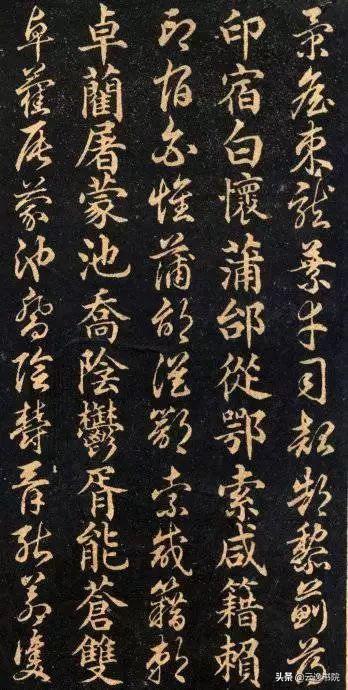 景詹束龍葉幸司韶郜黎薊薄
印宿白懷蒲邰從鄂索咸籍賴
印宿白懷蒲邰從鄂索咸籍賴
卓藺屠蒙池喬陰鬱胥能蒼雙
卓藺屠蒙池喬陰鬱胥能蒼雙
头条 @云逸书院